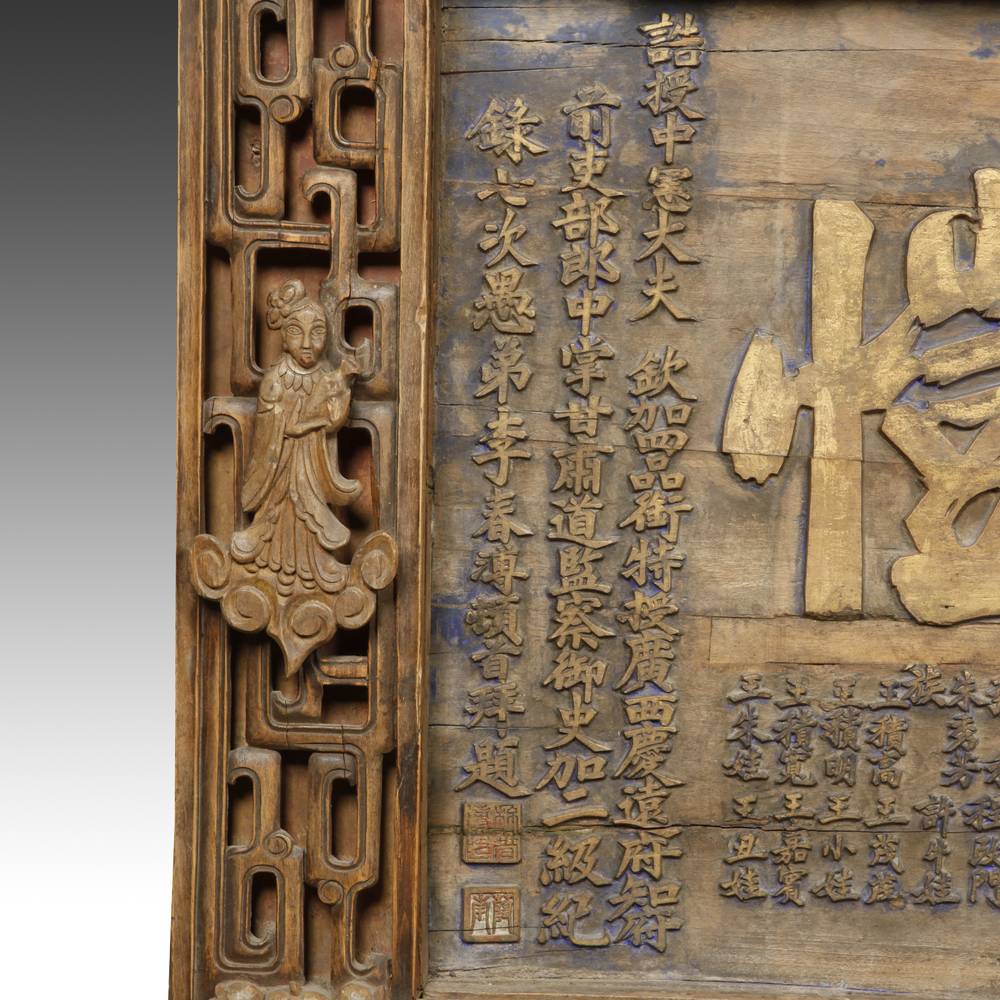 誥授中憲大夫 欽加四品銜特授廣西慶遠府知府
前吏部郎中掌甘肅道監察御史加二級紀
錄七次愚弟李春溥頓首拜題
朱秀芳
許牛娃
族
王積高 王茂茂
王積明 王小娃
王積寬 王嘉賓
王朱娃 王丑娃